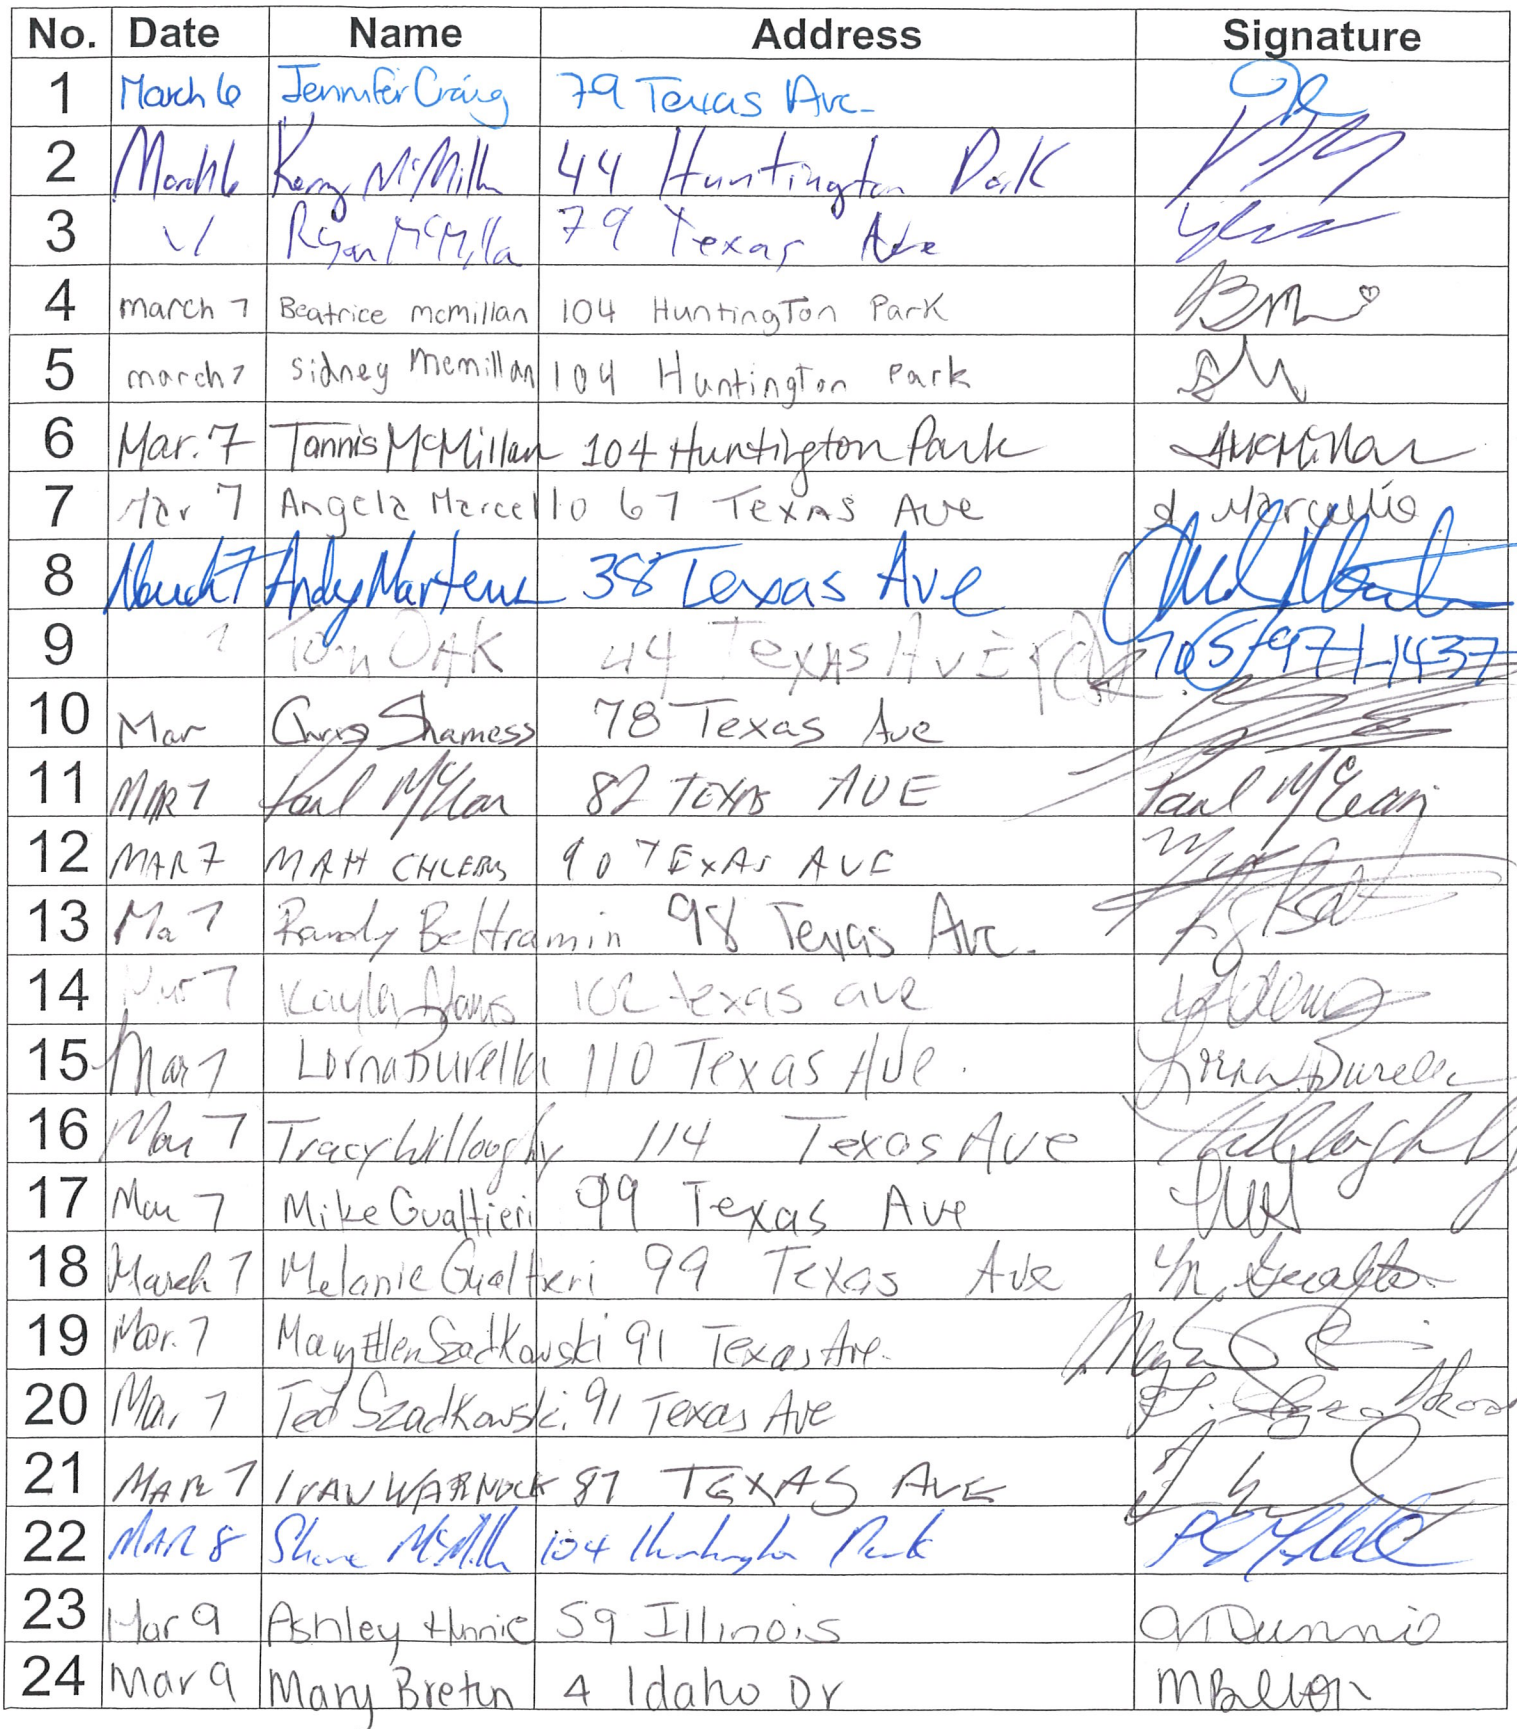 No. Date Name Address Signature
1 March 6 Jennifer Craig 79 Texas Ave.
2 March 6 Kerry McMillan 44 Huntington Park
3 Ryan McMilla 79 Texas Ave
4 march 7 Beatrice mcmillan 104 Huntington Park
5 march 7 sidney Mcmillan 104 Huntington Park
6 Mar. 7 Tannis McMillan 104 Huntington Park
7 Mar 7 Angela Marcello 67 Texas Ave A Marcello
8 March 7 Andy Martens 38 Texas Ave
9 7 Tom OAK 44 Texas Ave 705-971-1437
10 Mar Chris Shamess 78 Texas Ave
11 MAR 7 Paul McLean 82 TEXAS AVE Paul McLean
12 MAR 7 MATT 90 TEXAS AVE
13 Ma 7 Randy Beltramin 98 Texas Ave.
14 Mar 7 Kayla Adams 102 texas ave
15 Mar 7 Lorna Burella 110 Texas Ave. Lorna Burella
16 Mar 7 Tracy Willoughby 114 Texas Ave
17 Mar 7 Mike Gualtieri 99 Texas Ave
18 March 7 Melanie Gualtieri 99 Texas Ave
19 Mar. 7 Mary Ellen Szadkowski 91 Texas Ave.
20 Mar. 7 Ted Szadkowski. 91 Texas Ave
21 MAR 7 IVAN WARNOCK 87 TEXAS AVE
22 MAR 8 Shane McMilln 104 Huntington Park
23 Mar 9 Ashley 59 Illinois
24 Mar 9 Mary Breton 4 Idaho Dr